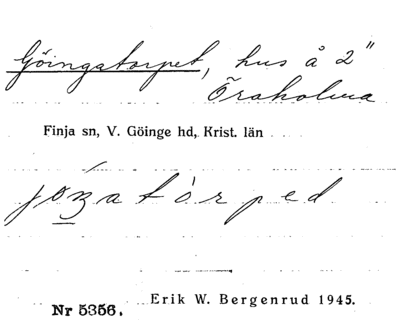 Göingatorpet, hus å 2"
Öraholma
Finja sn, V. Göinge hd, Krist. län
Erik W. Bergenrud 1945.
Nr 5356.